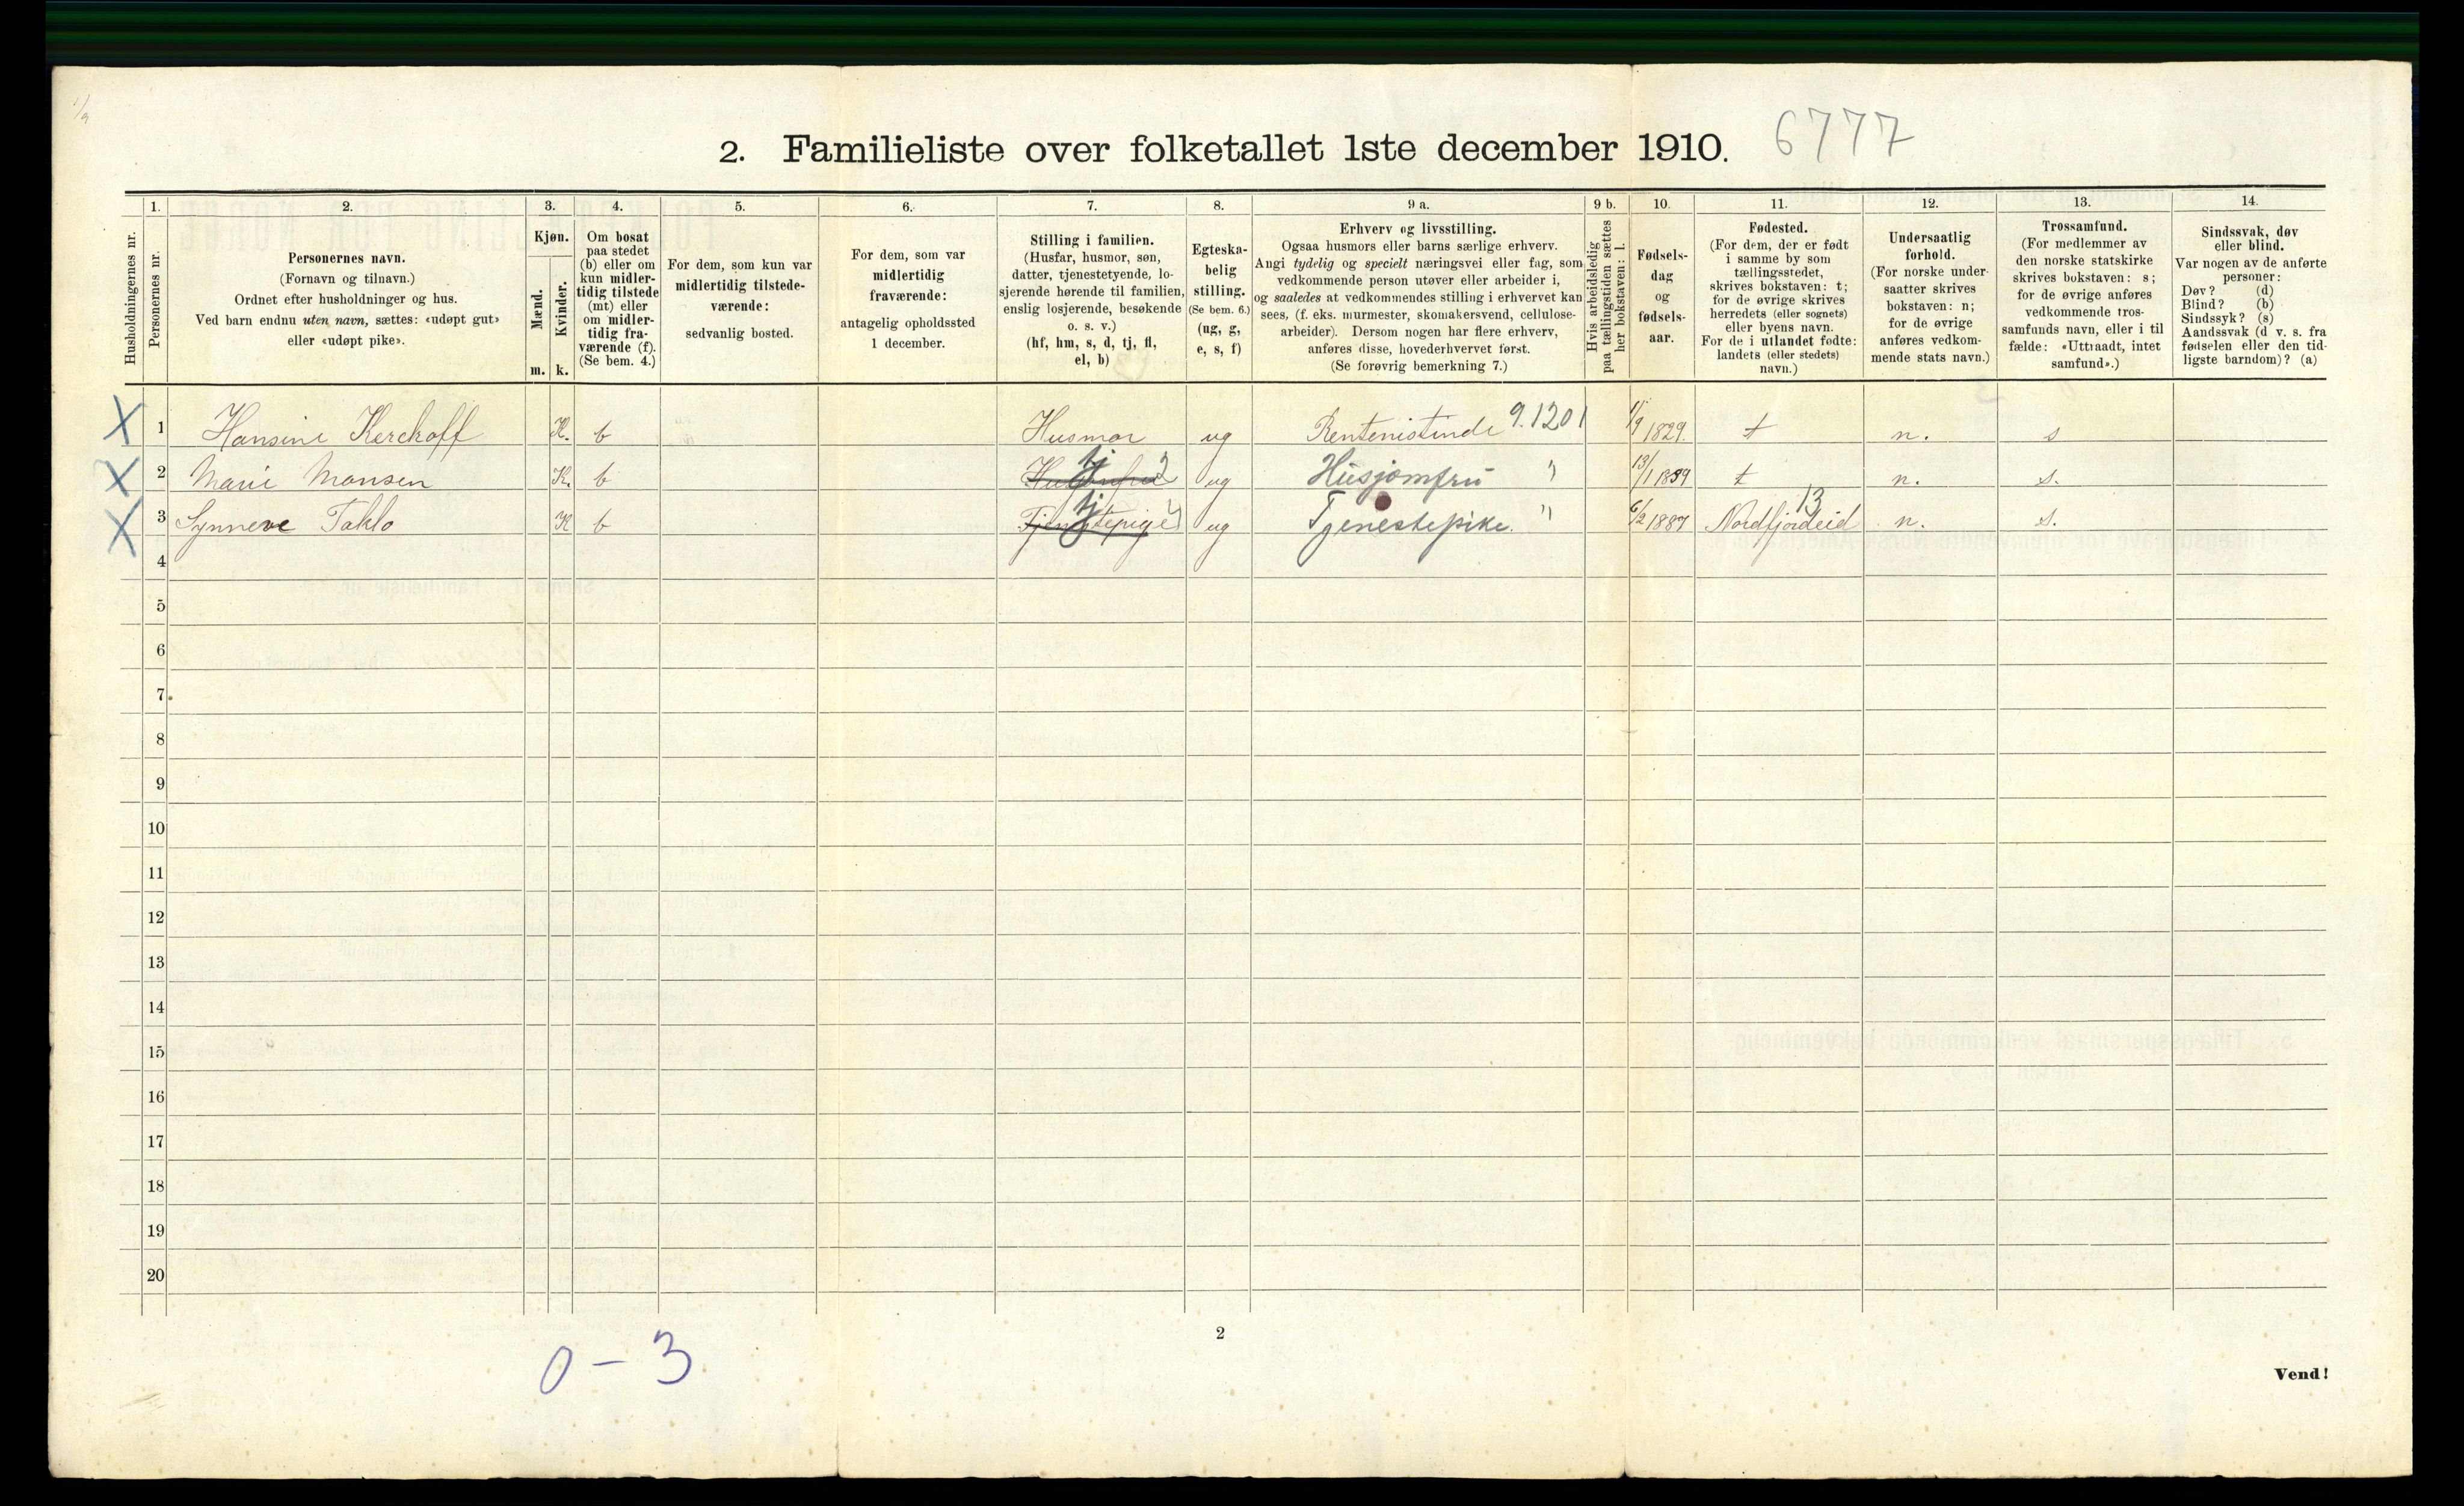 2. Familieliste over folketallet 1ste december 1910. 6777
1. 2. 3. 4. 5. 6. 7. 8. 9 a. 9 b. 10. 11. 12. 13. 14.
Husholdningernes nr.
Personernes nr.
Personernes navn.
(Fornavn og tilnavn.)
Ordnet efter husholdninger og hus.
Ved barn endnu uten navn, sættes: «udøpt gut»
eller «udøpt pike».
Kjøn.
Mænd.
Kvinder.
m. k.
Om bosat
paa stedet
(b) eller om
kun midler-
tidig tilstede
(mt) eller
om midler-
tidig fra-
værende (f).
(Se bem. 4.)
For dem, som kun var
midlertidig tilstede-
værende:
sedvanlig bosted.
For dem, som var
midlertidig
fraværende:
antagelig opholdssted
1 december.
Stilling i familien.
(Husfar, husmor, søn,
datter, tjenestetyende, lo-
sjerende hørende til familien,
enslig losjerende, besøkende
o. s. v.)
(hf, hm, s, d, tj, fl,
el, b)
Egteska-
belig
stilling.
(Se bem. 6.)
(ug, g,
e, s, f)
Erhverv og livsstilling.
Ogsaa husmors eller barns særlige erhverv.
Angi tydelig og specielt næringsvei eller fag, som
vedkommende person utøver eller arbeider i,
og saaledes at vedkommendes stilling i erhvervet kan
sees, (f. eks. murmester, skomakersvend, cellulose-
arbeider). Dersom nogen har flere erhverv,
anføres disse, hovederhvervet først.
(Se forøvrig bemerkning 7.)
Hvis arbeidsledig
paa tællingstiden sættes
her bokstaven: l.
Fødsels-
dag
og
fødsels-
aar.
Fødested.
(For dem, der er født
i samme by som
tællingsstedet,
skrives bokstaven: t;
for de øvrige skrives
herredets (eller sognets)
eller byens navn.
For de i utlandet fødte:
landets (eller stedets)
navn.)
Undersaatlig
forhold.
(For norske under-
saatter skrives
bokstaven: n;
for de øvrige
anføres vedkom-
mende stats navn.)
Trossamfund.
(For medlemmer av
den norske statskirke
skrives bokstaven: s;
for de øvrige anføres
vedkommende tros-
samfunds navn, eller i til
fælde: «Uttraadt, intet
samfund».)
Sindssvak, døv
eller blind.
Var nogen av de anførte
personer:
Døv? (d)
Blind? (b)
Sindssyk? (s)
Aandssvak (d v. s. fra
fødselen eller den tid-
ligste barndom)? (a)
X 1 Hansine Kerchoff K. b Husmor ug Rentenistinde 9.1201 1829. t n. s
X 2 Marie Monsen K. b tj 2 ug Husjomfru " 13/1 1839 t n. s.
X 3 Synneve Taklo K b Tjenestepige tj ug Tjenestepike. " 6/2 1887 Nordfjordeid 13 n. s.
4
5
6
7
8
9
10
11
12
13
14
15
16
17
18
19
20
0 - 3
2
Vend!